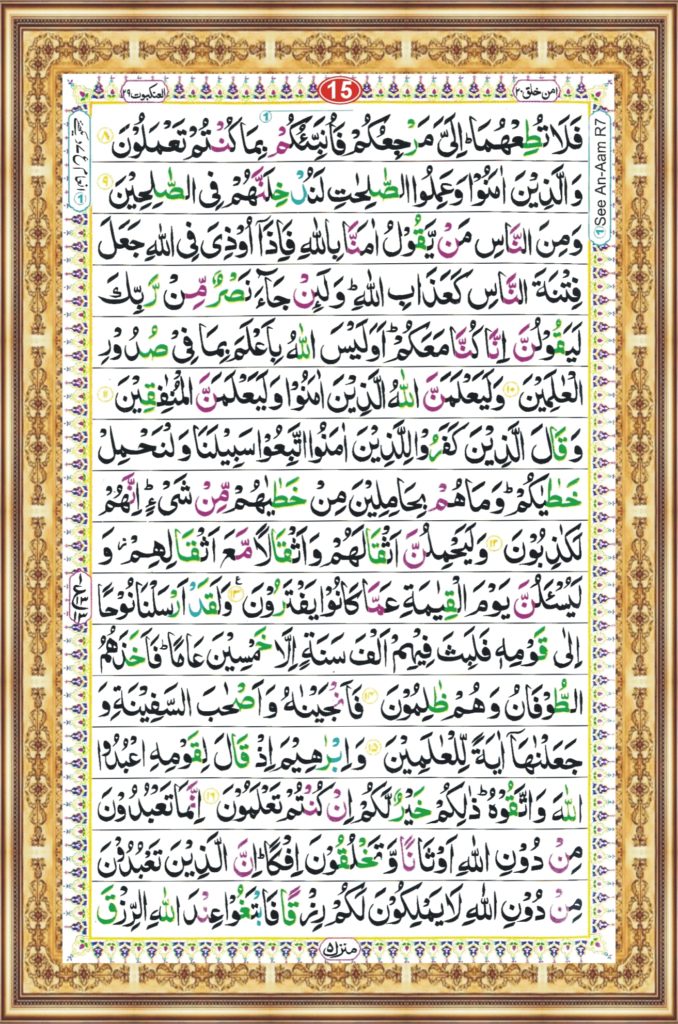 العنكبوت ٢٩
15
امن خلق ٢٠
فَلَا تُطِعْهُمَا ؕ اِلَیَّ مَرْجِعُكُمْ فَاُنَبِّئُكُمْ بِمَا كُنْتُمْ تَعْمَلُوْنَ ۸
وَالَّذِیْنَ اٰمَنُوْا وَعَمِلُوا الصّٰلِحٰتِ لَنُدْخِلَنَّهُمْ فِی الصّٰلِحِیْنَ ۹
وَمِنَ النَّاسِ مَنْ یَّقُوْلُ اٰمَنَّا بِاللّٰهِ فَاِذَاۤ اُوْذِیَ فِی اللّٰهِ جَعَلَ
فِتْنَةَ النَّاسِ كَعَذَابِ اللّٰهِ ؕ وَلَئِنْ جَآءَ نَصْرٌ مِّنْ رَّبِّكَ
لَیَقُوْلُنَّ اِنَّا كُنَّا مَعَكُمْ ؕ اَوَلَیْسَ اللّٰهُ بِاَعْلَمَ بِمَا فِیْ صُدُوْرِ
الْعٰلَمِیْنَ ۱۰ وَلَیَعْلَمَنَّ اللّٰهُ الَّذِیْنَ اٰمَنُوْا وَلَیَعْلَمَنَّ الْمُنٰفِقِیْنَ ۱۱
وَقَالَ الَّذِیْنَ كَفَرُوْا لِلَّذِیْنَ اٰمَنُوا اتَّبِعُوْا سَبِیْلَنَا وَلْنَحْمِلْ
خَطٰیٰكُمْ ؕ وَمَا هُمْ بِحٰمِلِیْنَ مِنْ خَطٰیٰهُمْ مِّنْ شَیْءٍ ؕ اِنَّهُمْ
لَكٰذِبُوْنَ ۱۲ وَلَیَحْمِلُنَّ اَثْقَالَهُمْ وَاَثْقَالًا مَّعَ اَثْقَالِهِمْ ز وَ
لَیُسْـَٔلُنَّ یَوْمَ الْقِیٰمَةِ عَمَّا كَانُوْا یَفْتَرُوْنَ ۱۳ ع وَلَقَدْ اَرْسَلْنَا نُوْحًا
اِلٰی قَوْمِهٖ فَلَبِثَ فِیْهِمْ اَلْفَ سَنَةٍ اِلَّا خَمْسِیْنَ عَامًا ؕ فَاَخَذَهُمُ
الطُّوْفَانُ وَهُمْ ظٰلِمُوْنَ ۱۴ فَاَنْجَیْنٰهُ وَاَصْحٰبَ السَّفِیْنَةِ وَ
جَعَلْنٰهَاۤ اٰیَةً لِّلْعٰلَمِیْنَ ۱۵ وَاِبْرٰهِیْمَ اِذْ قَالَ لِقَوْمِهِ اعْبُدُوا
اللّٰهَ وَاتَّقُوْهُ ؕ ذٰلِكُمْ خَیْرٌ لَّكُمْ اِنْ كُنْتُمْ تَعْلَمُوْنَ ۱۶ اِنَّمَا تَعْبُدُوْنَ
مِنْ دُوْنِ اللّٰهِ اَوْثَانًا وَّتَخْلُقُوْنَ اِفْكًا ؕ اِنَّ الَّذِیْنَ تَعْبُدُوْنَ
مِنْ دُوْنِ اللّٰهِ لَا یَمْلِكُوْنَ لَكُمْ رِزْقًا فَابْتَغُوْا عِنْدَ اللّٰهِ الرِّزْقَ
منزل ۵
1 See An-Aam R7